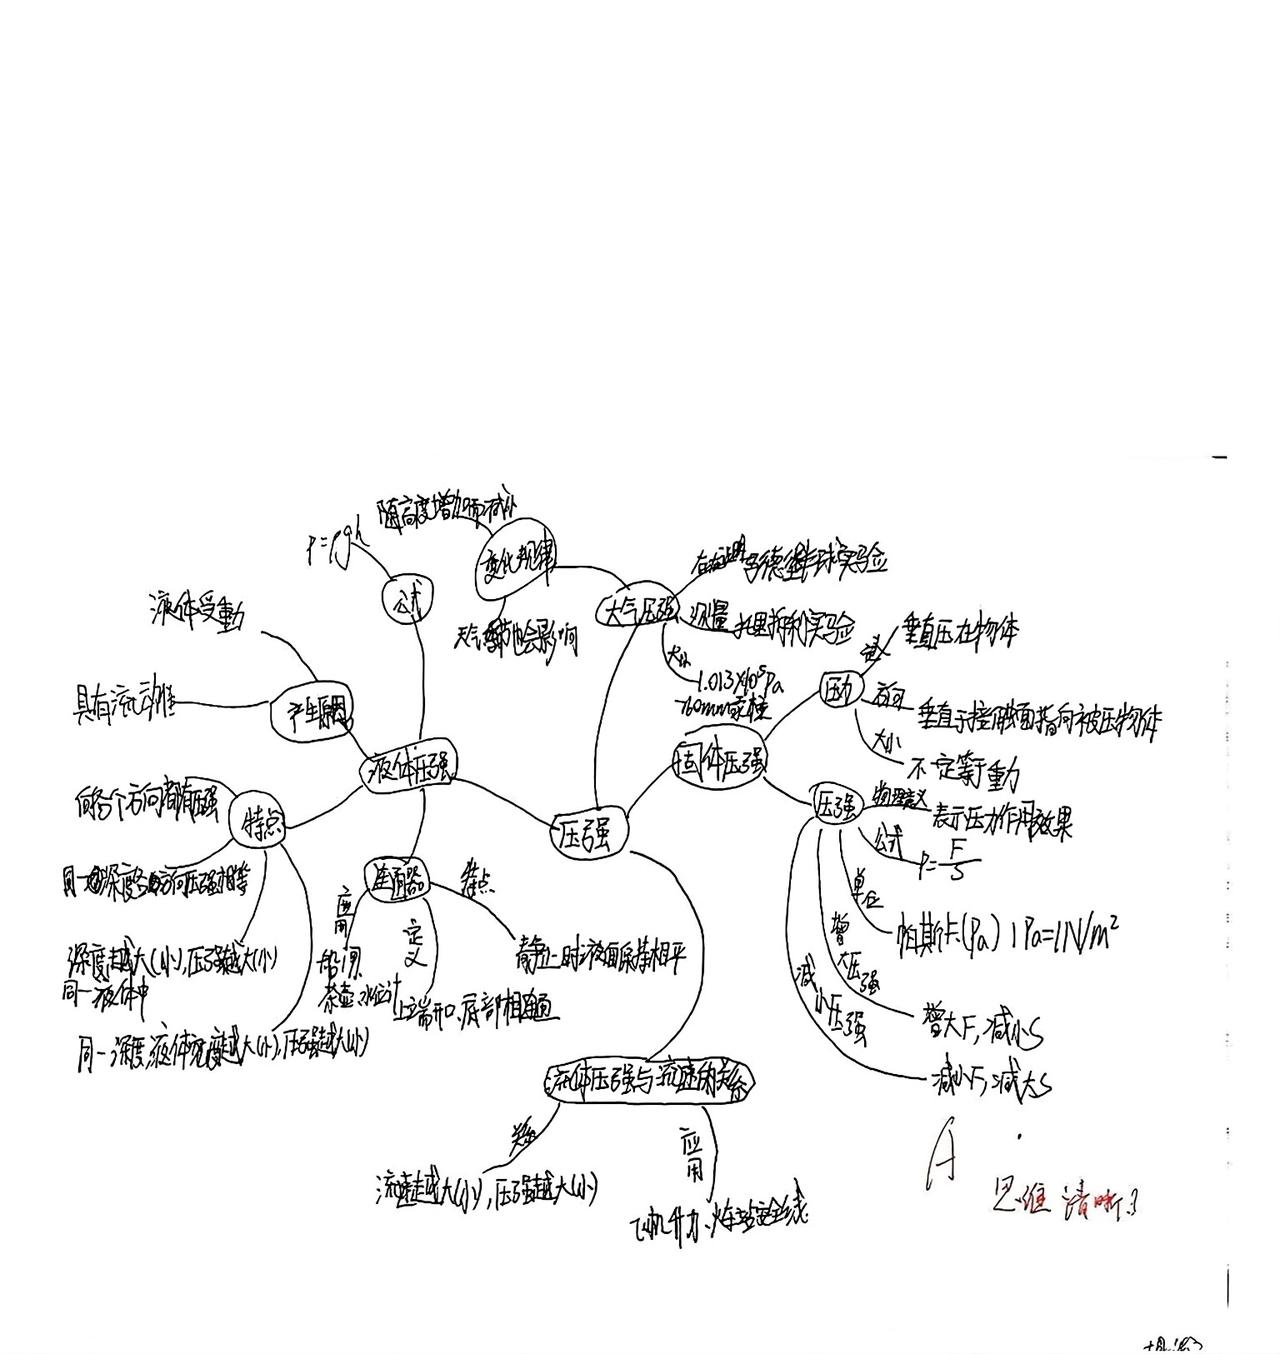 随高度增加而减小
P=ρgh
变化规律
公式
大气压强
马德堡半球实验
测量
托里拆利实验
天气 也会影响
大小
1.013×10⁵Pa
760mm汞柱
液体受重力
具有流动性
产生原因
液体压强
固体压强
压强
压力
垂直压在物体
方向
垂直于接触面指向被压物体
大小
不一定等于重力
压强
物理意义
表示压力作用效果
公式
P=F/S
单位
帕斯卡(Pa) 1Pa=1N/m²
增大压强
增大F,减小S
减小压强
减小F,减大S
特点
向各个方向都有压强
同一 深度各 方向压强相等
深度越大(小),压强越大(小)
同一液体中
同一深度,液体密度越大(小),压强越大(小)
连通器
应用
船闸
茶壶、水位计
定义
上端开口、底部相连通
特点
静止时液面保持相平
流体压强与流速的关系
关系
流速越大(小),压强越大(小)
应用
飞机升力、火车站安全线
A
思维清晰